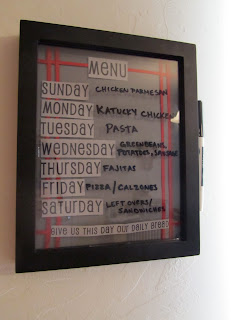 MENU
SUNDAY CHICKEN PARMESAN
MONDAY KATUCKY CHICKEN
TUESDAY PASTA
WEDNESDAY GREENBEANS, POTATOES, SAUSAGE
THURSDAY FAJITAS
FRIDAY PIZZA/CALZONES
SATURDAY LEFTOVERS/ SANDWICHES
GIVE US THIS DAY OUR DAILY BREAD